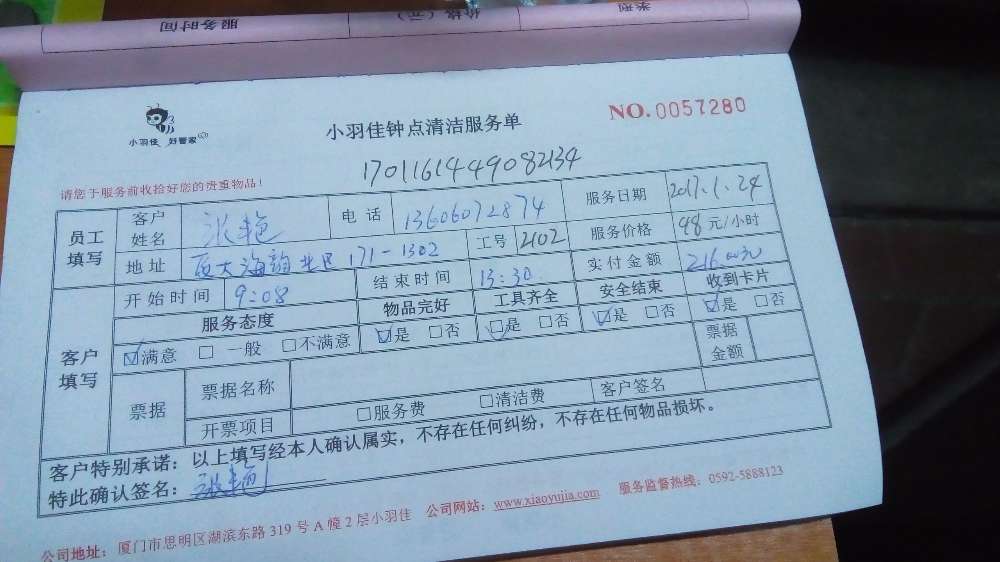 服务时间 价格(元) 类型
小羽佳 好管家
小羽佳钟点清洁服务单
NO.0057280
1701161449082134
请您于服务前收拾好您的贵重物品!
员工填写 客户姓名 张艳 电话 13606072874 服务日期 2017.1.24
地址 厦大海韵北区 171-1302 工号 2102 服务价格 48元/小时
开始时间 9:08 结束时间 13:30 实付金额 216.00元
客户填写 服务态度 物品完好 工具齐全 安全结束 收到卡片
☑满意 □一般 □不满意 ☑是 □否 ☑是 □否 ☑是 □否 ☑是 □否
票据 票据名称 票据金额
开票项目 □服务费 □清洁费 客户签名
客户特别承诺:以上填写经本人确认属实,不存在任何纠纷,不存在任何物品损坏。
特此确认签名:张艳
公司地址:厦门市思明区湖滨东路319号A幢2层小羽佳 公司网站:www.xiaoyujia.com 服务监督热线:0592-5888123